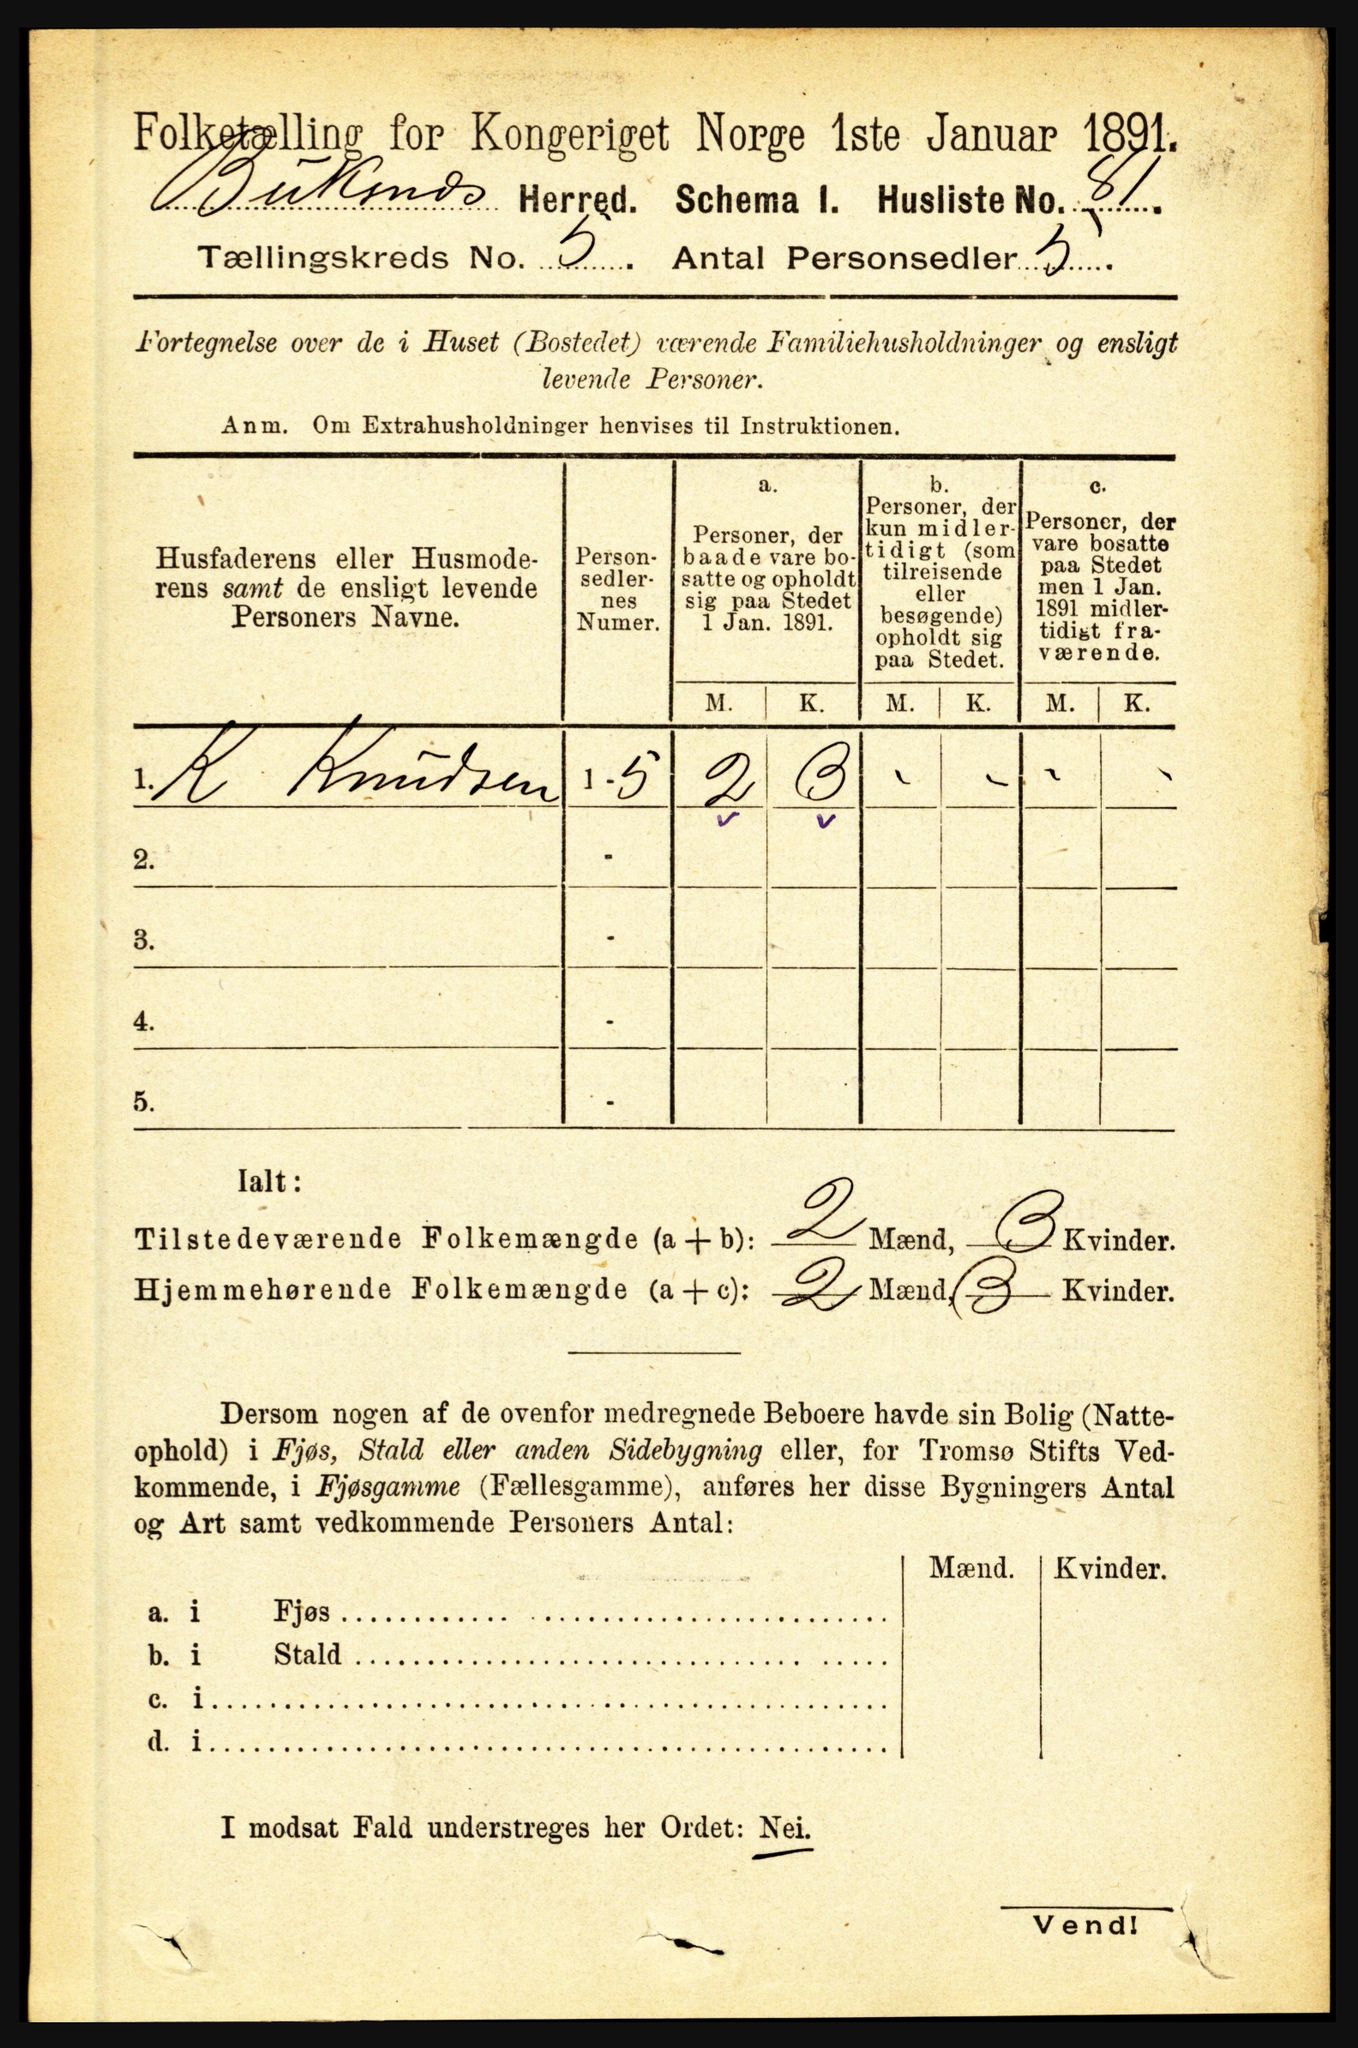 Folketælling for Kongeriget Norge 1ste Januar 1891.
Buksnes Herred. Schema I. Husliste No. 81.
Tællingskreds No. 5. Antal Personsedler 5.
Fortegnelse over de i Huset (Bostedet) værende Familiehusholdninger og ensligt
levende Personer.
Anm. Om Extrahusholdninger henvises til Instruktionen.
Husfaderens eller Husmode-
rens samt de ensligt levende
Personers Navne.
Person-
sedler-
nes
Numer.
a.
Personer, der
baade vare bo-
satte og opholdt
sig paa Stedet
1 Jan. 1891.
b.
Personer, der
kun midler-
tidigt (som
tilreisende
eller
besøgende)
opholdt sig
paa Stedet.
c.
Personer, der
vare bosatte
paa Stedet
men 1 Jan.
1891 midler-
tidigt fra-
værende.
M. K. M. K. M. K.
1. K Knudsen 1-5 2 3 - - - -
2. -
3. -
4. -
5. -
Ialt:
Tilstedeværende Folkemængde (a+b): 2 Mænd, 3 Kvinder.
Hjemmehørende Folkemængde (a+c): 2 Mænd, 3 Kvinder.
Dersom nogen af de ovenfor medregnede Beboere havde sin Bolig (Natte-
ophold) i Fjøs, Stald eller anden Sidebygning eller, for Tromsø Stifts Ved-
kommende, i Fjøsgamme (Fællesgamme), anføres her disse Bygningers Antal
og Art samt vedkommende Personers Antal:
Mænd. Kvinder.
a. i Fjøs
b. i Stald
c. i
d. i
I modsat Fald understreges her Ordet: Nei.
Vend!